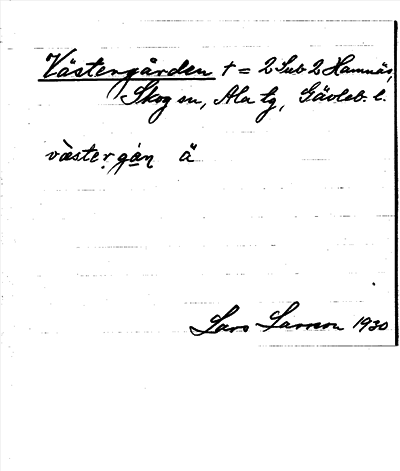 Västergården t = 2 Sub 2 Hamnäs,
Skog sn, Ala tg, Gävleb. l.
væ̀stergán ä
Lars Larsson 1930